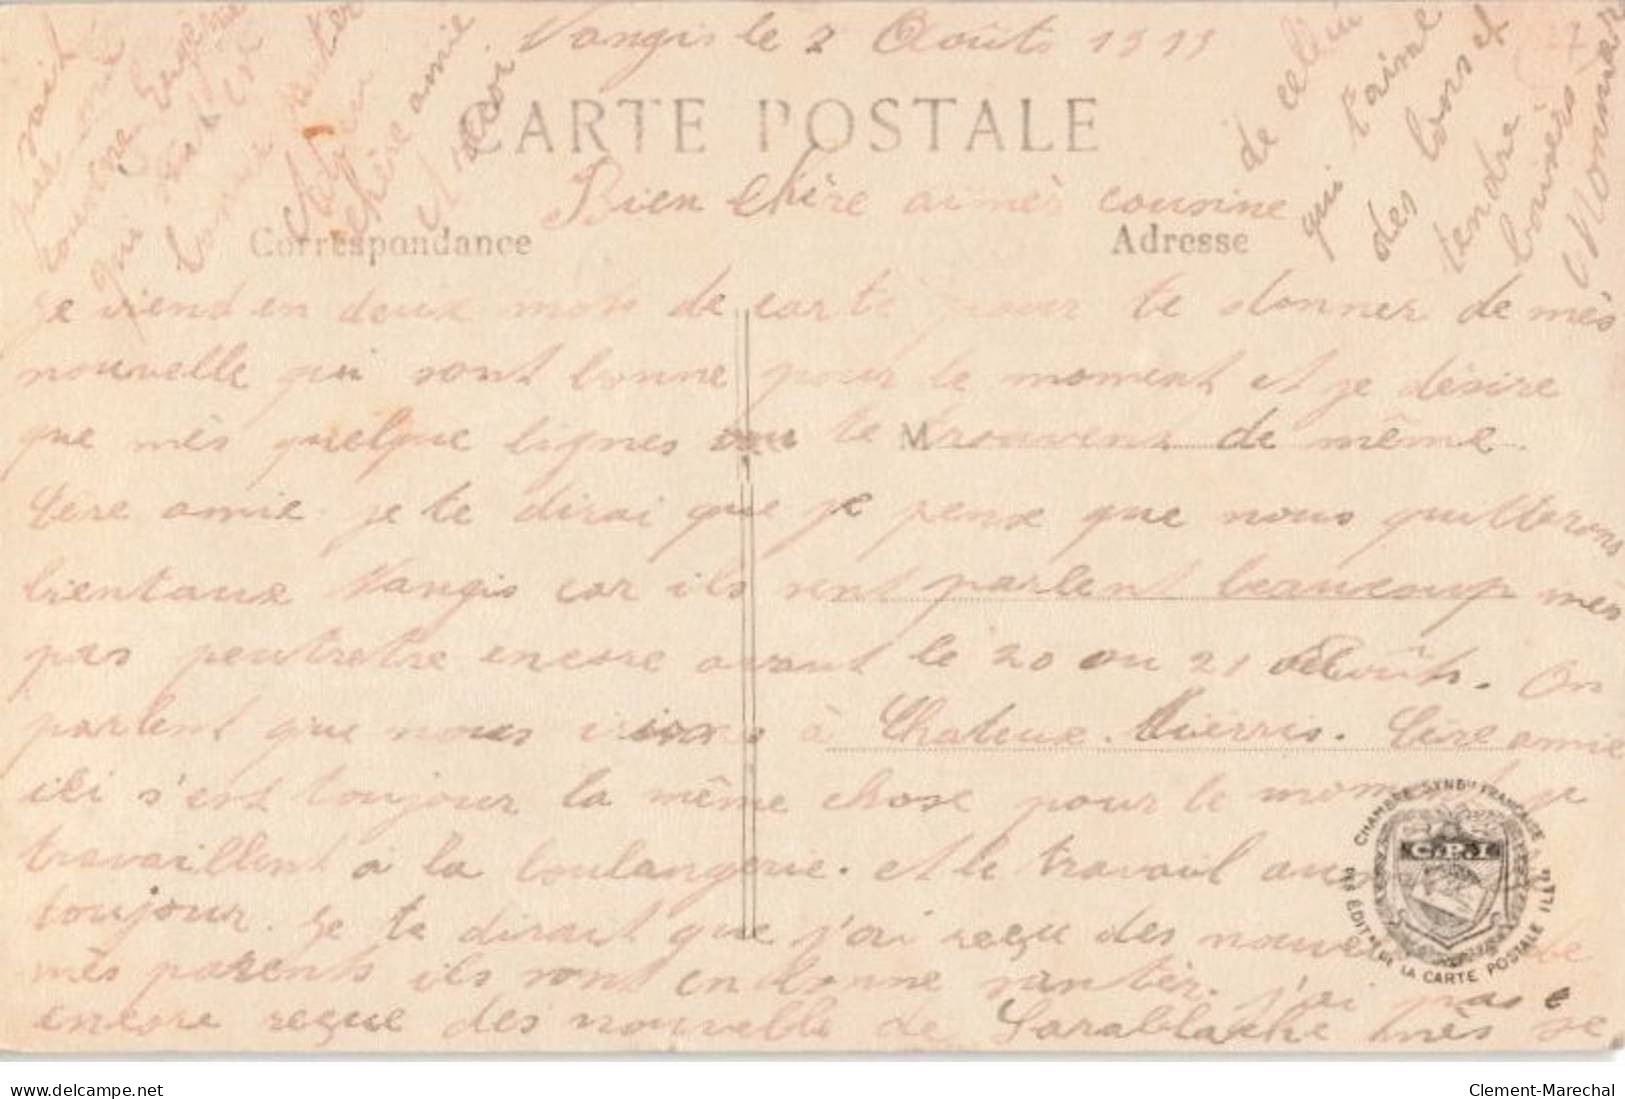 Nangis le 2 Aoûts 1915
CARTE POSTALE
Bien Chère aimés cousine
Correspondance
Adresse
Je viend en deux mots de carte pour te donner de mès
nouvelle qui sont bonne pour le moment et je désire
que mès quelque lignes te trouvens de même.
M
Cère amie. je te dirai que je pense que nous quitterons
bientaux Nangis car ils sent parlent beaucoup mès
pas peutretre encore avant le 20 ou 21 Aoûts. On
parlent que nous irions à Chateux. Tierris. Cère amie
ici s'est toujour la même chose pour le moment je
travaillent à la boulangerie. et le travail
toujour. Je te dirait que j'ai reçu des nouvelle de
mès parents ils sont en bonne santér. j'ai pas
encore reçue des nouvelle de Sarablache mès se
nait
pas
cousine Eugénie
qui
bonne santer
chère amie
de cellui
qui t'aime
des bons et
tendre
baisers
CHAMBRE SYND. FRANÇAISE
C.P.I
DES ÉDIT. DE LA CARTE POSTALE ILL.
www.delcampe.net
Clement-Marechal